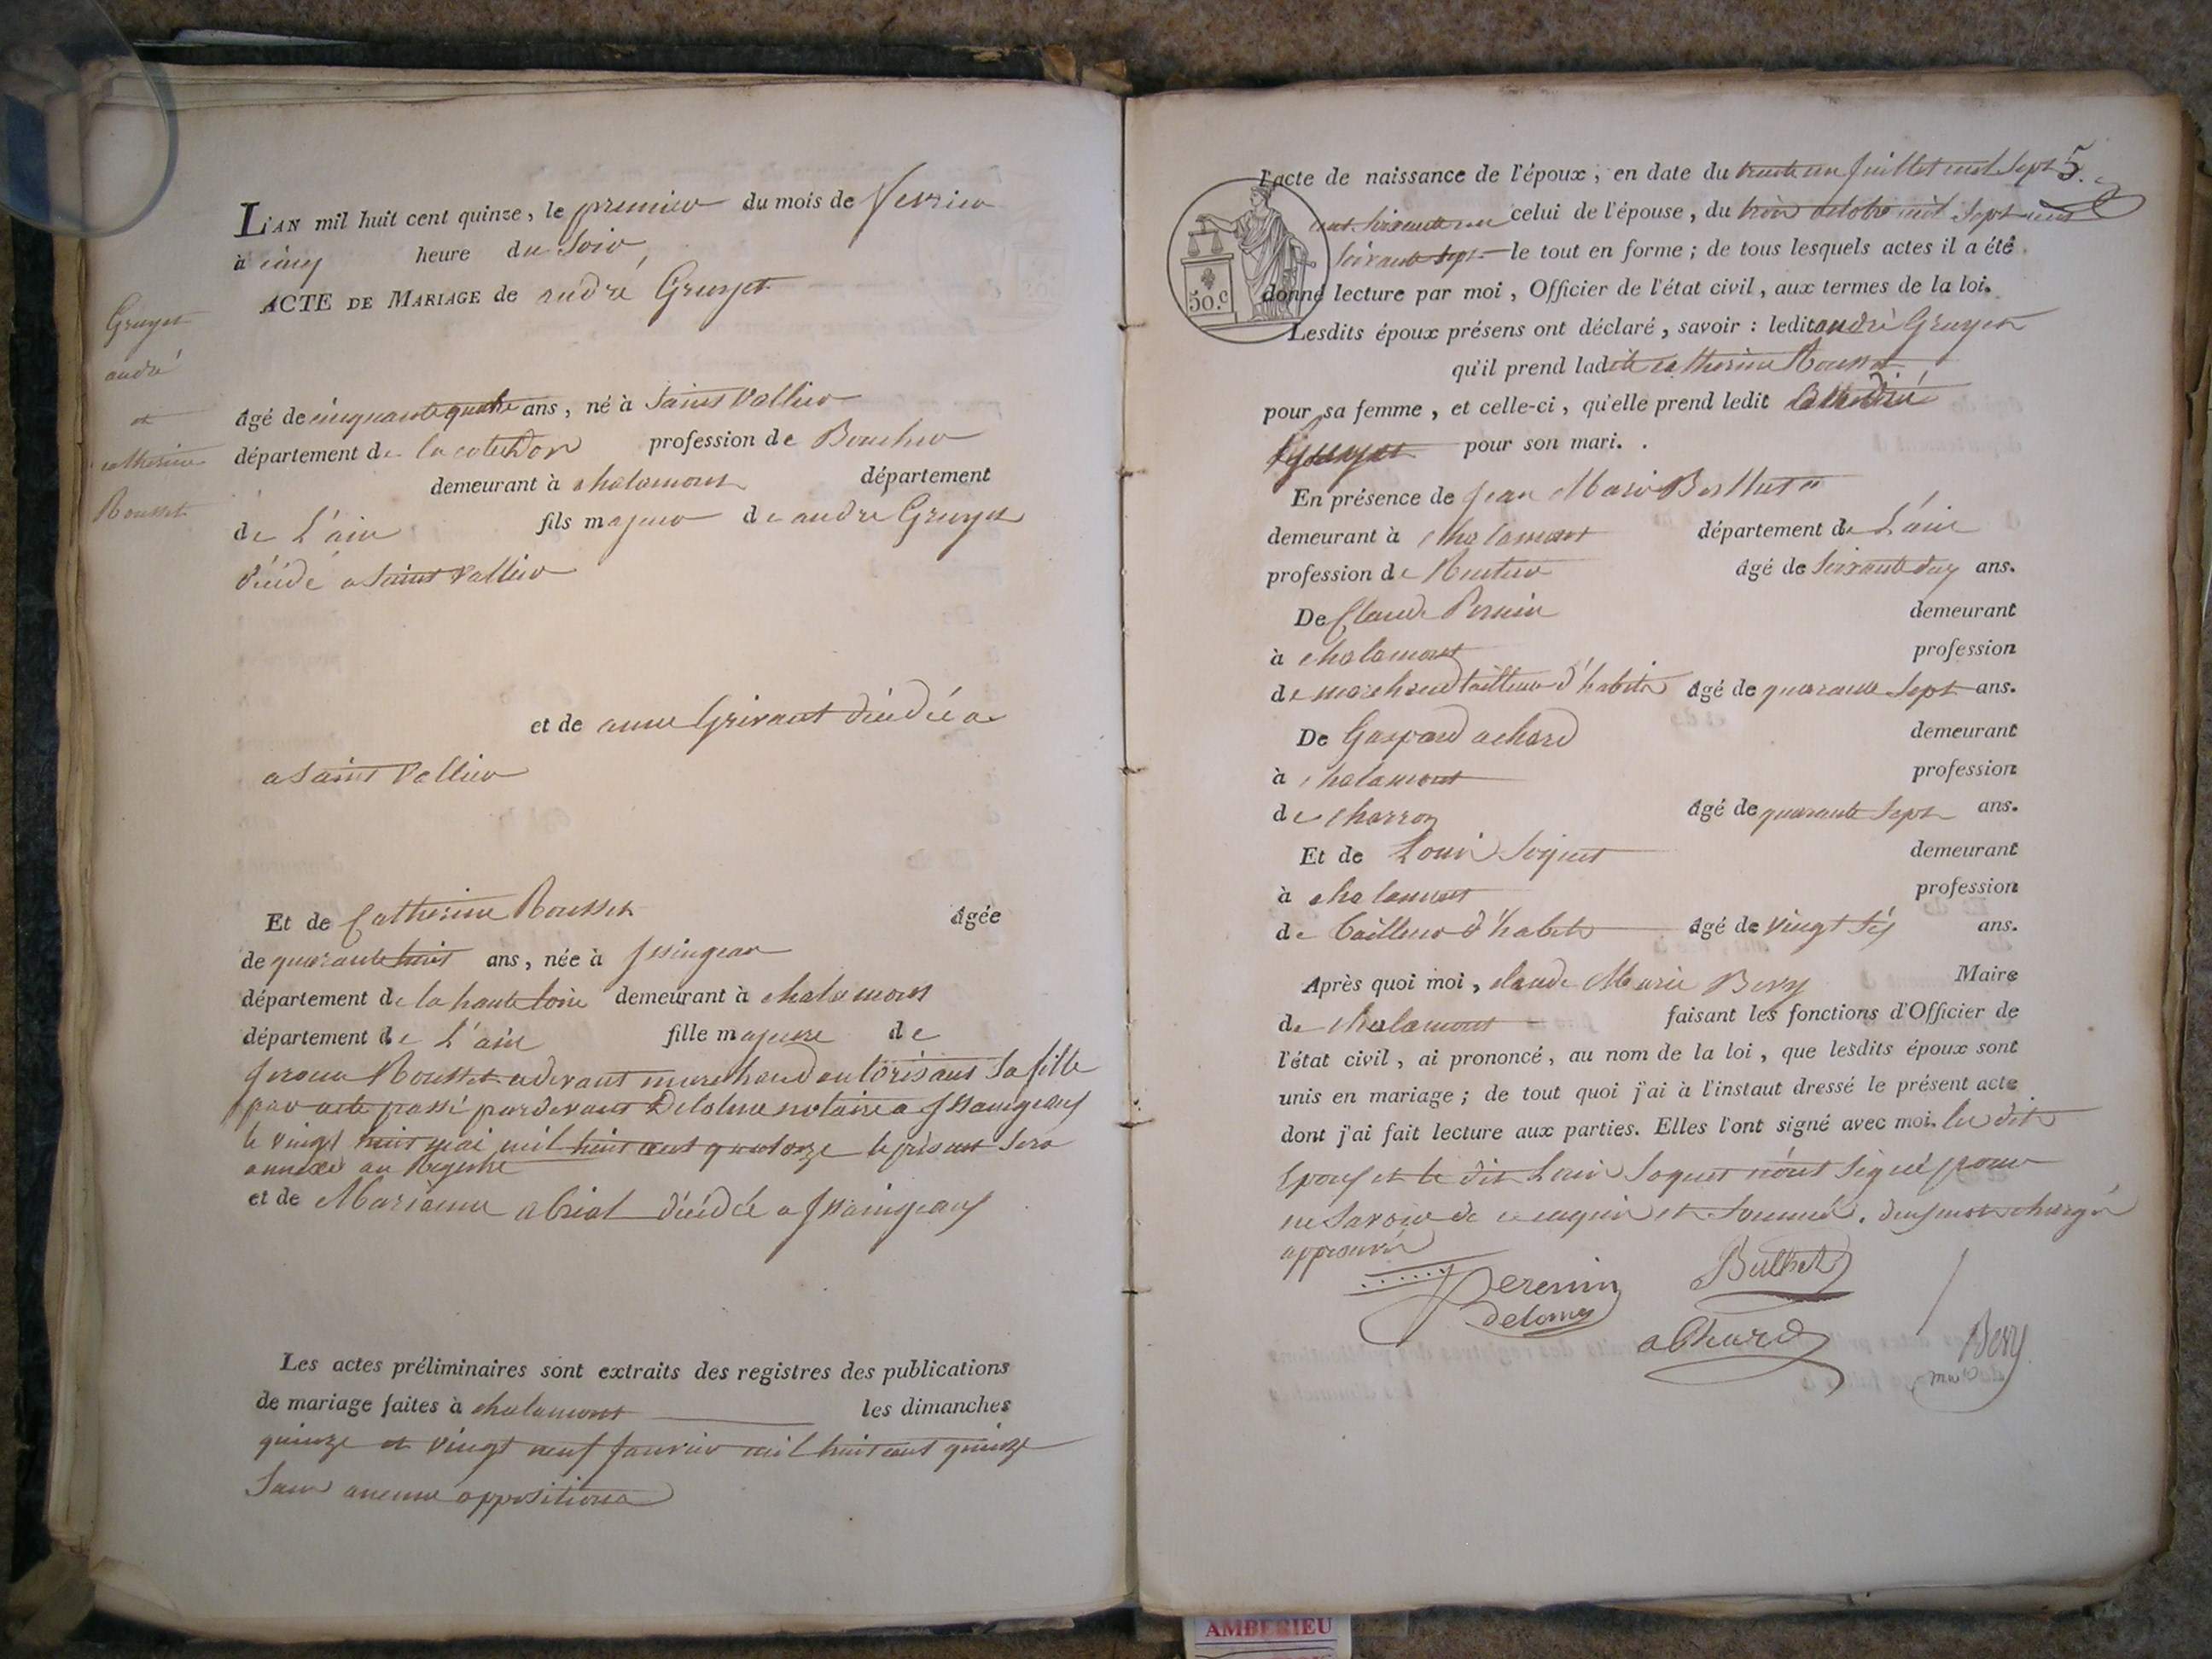 L'AN mil huit cent quinze, le premier du mois de fevrier
à cinq heure du soir,
ACTE DE MARIAGE de andré Gruyet
Gruyet
andré
et
catherine
Rousset
âgé de cinquante quatre ans, né à Saint Vallier
département de la cote d'or profession de Boucher
demeurant à chalamont département
de L'ain fils majeur de andre Gruyet
décédé a Saint Vallier
et de anne Grivaut décédée a
a Saint Vallier
Et de Catherine Rousset âgée
de quarante huit ans, née à
département de la haute loire demeurant à chalamont
département de L'ain fille majeure de
Rousset cidevant marchand autorisant sa fille
par acte passé pardevant Delolme notaire a Issaingeaux
le vingt huit mai mil huit cent quatorze le présent sera
annexé au Registre
et de Marianne abrial décédée a Issaingeaux
Les actes préliminaires sont extraits des registres des publications
de mariage faites à chalamont les dimanches
quinze et vingt neuf janvier mil huit cent quinze
sans aucune opposition
5.
l'acte de naissance de l'époux, en date du trente un juillet mil sept
cent soixante un celui de l'épouse, du trois octobre mil sept cent
soixante sept le tout en forme; de tous lesquels actes il a été
50.c
donné lecture par moi, Officier de l'état civil, aux termes de la loi.
Lesdits époux présens ont déclaré, savoir: ledit andré Gruyet
qu'il prend ladite catherine Rousset
pour sa femme, et celle-ci, qu'elle prend ledit
pour son mari.
En présence de Jean Marie
demeurant à chalamont département de L'ain
profession de Rentier âgé de soixante dix ans.
De Claude Pernin demeurant
à chalamont profession
de marchand tailleur d'habits âgé de quarante sept ans.
De Gaspard achard demeurant
à chalamont profession
de charron âgé de quarante sept ans.
Et de Louis Soquet demeurant
à chalamont profession
de tailleur d'habits âgé de vingt six ans.
Après quoi moi, claude Marie Bery Maire
de chalamont faisant les fonctions d'Officier de
l'état civil, ai prononcé, au nom de la loi, que lesdits époux sont
unis en mariage; de tout quoi j'ai à l'instant dressé le présent acte
dont j'ai fait lecture aux parties. Elles l'ont signé avec moi. les dits
Epoux et le dit Louis Soquet n'ont signé pour
ne savoir de ce enquis et sommés. deux mots chargés
approuvés
Perenin
Bulhet
achard
Bery
AMBERIEU